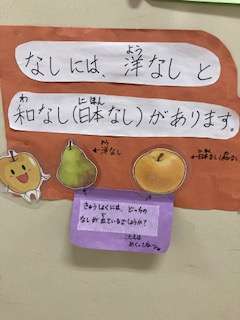 なしには、洋なしと
よう
和なし(日本なし)があります。
わ にほん
よう
←洋なし
にほん わ
←日本なし(和なし)
きゅうしょくには、どっちの
なしが出ているでしょうか?